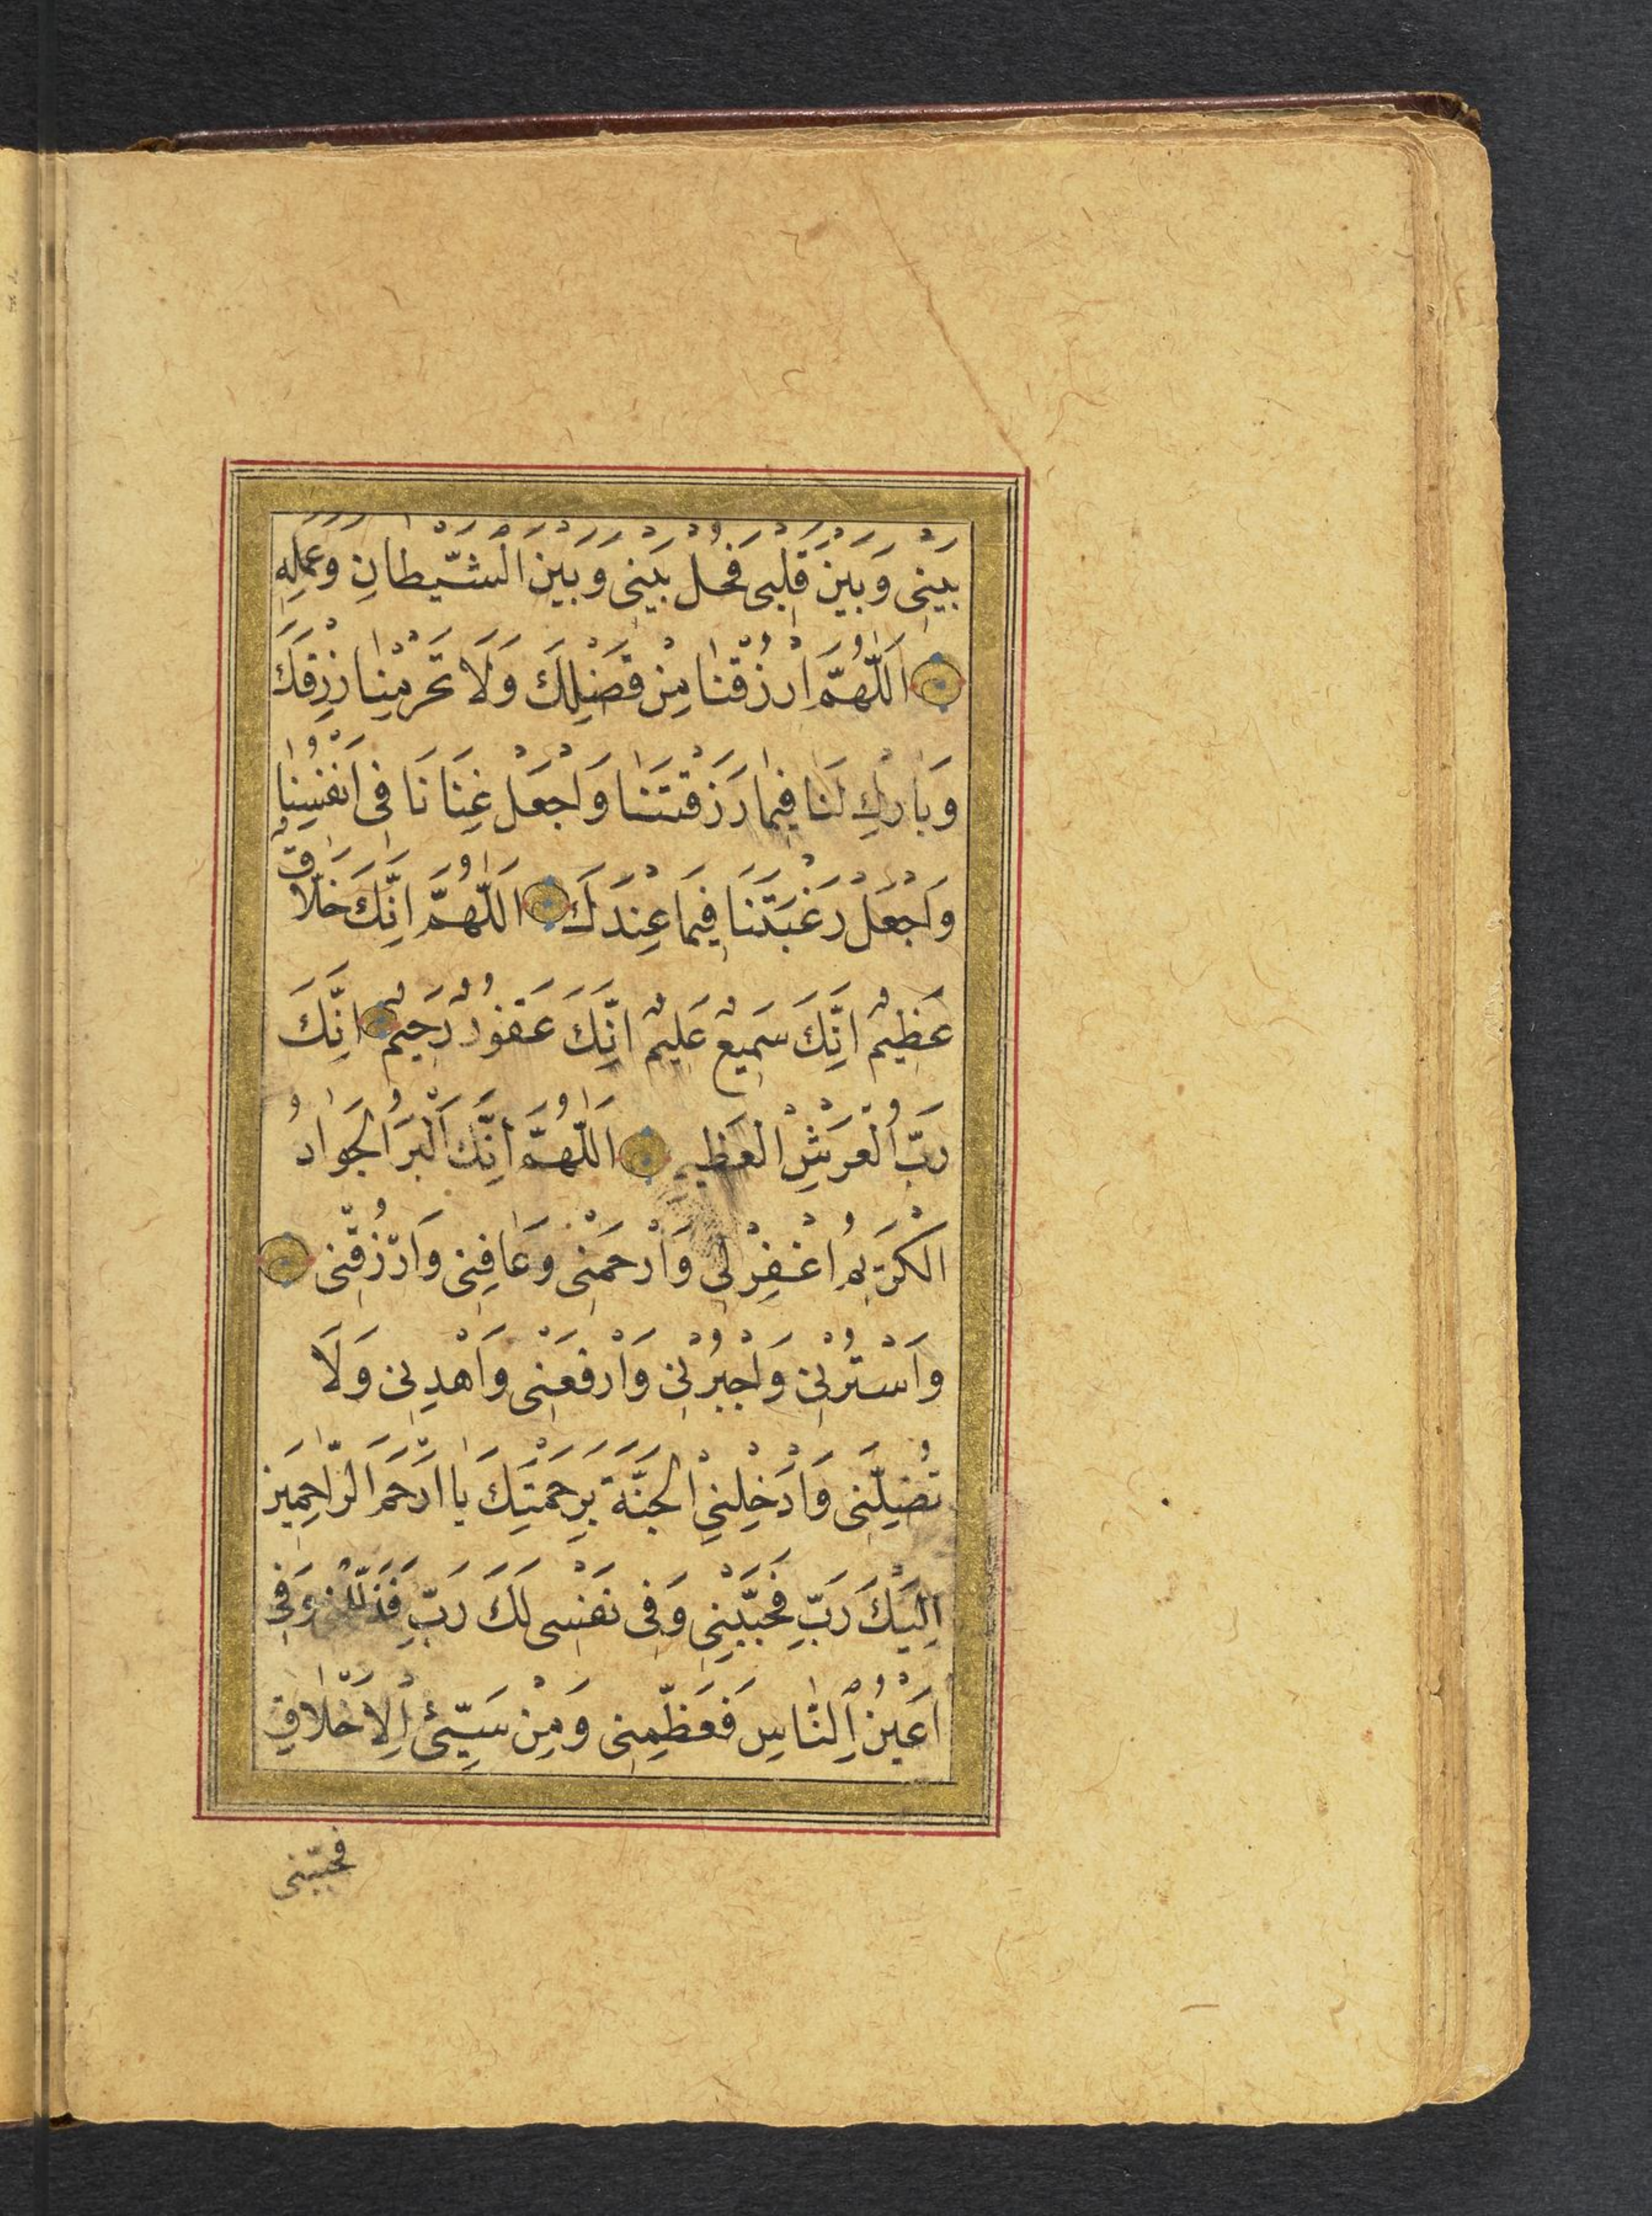 بَيْنِى وَبَيْنَ قَلْبِى فَحُلْ بَيْنِى وَبَيْنَ الشَّيْطَانِ وَعَمَلِهِ
اَللّٰهُمَّ ارْزُقْنَا مِنْ فَضْلِكَ وَلَا تَحْرِمْنَا رِزْقَكَ
وَبَارِكْ لَنَا فِيمَا رَزَقْتَنَا وَاجْعَلْ غِنَانَا فِى اَنْفُسِنَا
وَاجْعَلْ رَغْبَتَنَا فِيمَا عِنْدَكَ اَللّٰهُمَّ اِنَّكَ خَلَّاقٌ
عَظِيمٌ اِنَّكَ سَمِيعٌ عَلِيمٌ اِنَّكَ غَفُورٌ رَحِيمٌ اِنَّكَ
رَبُّ الْعَرْشِ الْعَظِيمِ اَللّٰهُمَّ اِنَّكَ الْبَرُّ الْجَوَادُ
الْكَرِيمُ اغْفِرْ لِى وَارْحَمْنِى وَعَافِنِى وَارْزُقْنِى
وَاسْتُرْنِى وَاجْبُرْنِى وَارْفَعْنِى وَاهْدِنِى وَلَا
تُضِلَّنِى وَاَدْخِلْنِى الْجَنَّةَ بِرَحْمَتِكَ يَا اَرْحَمَ الرَّاحِمِينَ
اِلَيْكَ رَبِّ فَحَبِّبْنِى وَفِى نَفْسِى لَكَ رَبِّ فَذَلِّلْنِى وَفِى
اَعْيُنِ النَّاسِ فَعَظِّمْنِى وَمِنْ سَيِّئِ الْاَخْلَاقِ
فجنّبنى